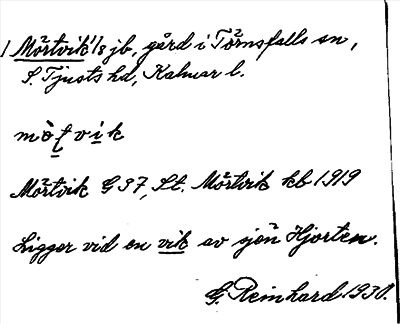 1 Mörtvik 1/8 jb, gård i Törnsfalls sn,
S. Tjusts hd, Kalmar l.
mö̀ṭvik
Mörtvik G 37, St. Mörtvik kb 1919
Ligger vid en vik av sjön Hjorten.
G. Reinhard 1930.